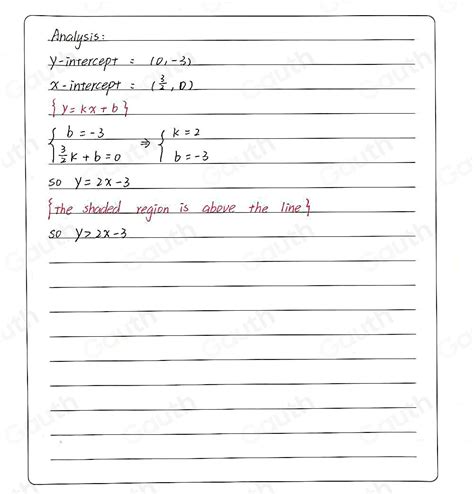 Analysis:
y-intercept = (0,-3)
x-intercept = (3/2, 0)
{y=kx+b}
{b=-3 ⇒ {k=2
{3/2k+b=0 b=-3
so y=2x-3
{the shaded region is above the line}
so y>2x-3
Gauth